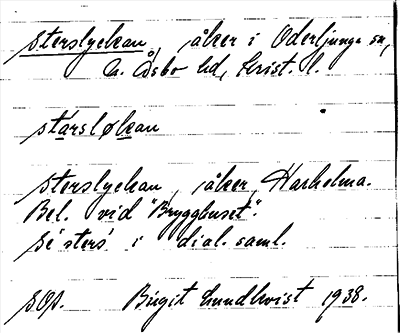 Sterslyckan, åker i Oderljunga sn,
N. Åsbo hd, Krist. l.
stársløkan
Sterslyckan, åker, Harholma.
Bel. vid "Brygghuset".
Se 'sters' i dial. saml.
SOP. Birgit Lundkvist 1938.